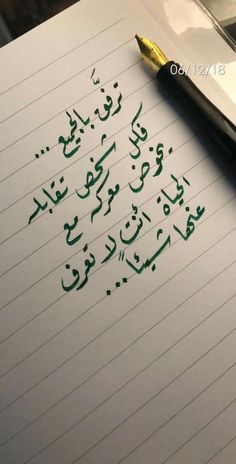 06/12/18
ترفق بالجميع...
فكل شخص تقابله
يخوض معركه مع
الحياة أنت لا تعرف
عنها شيئاً...